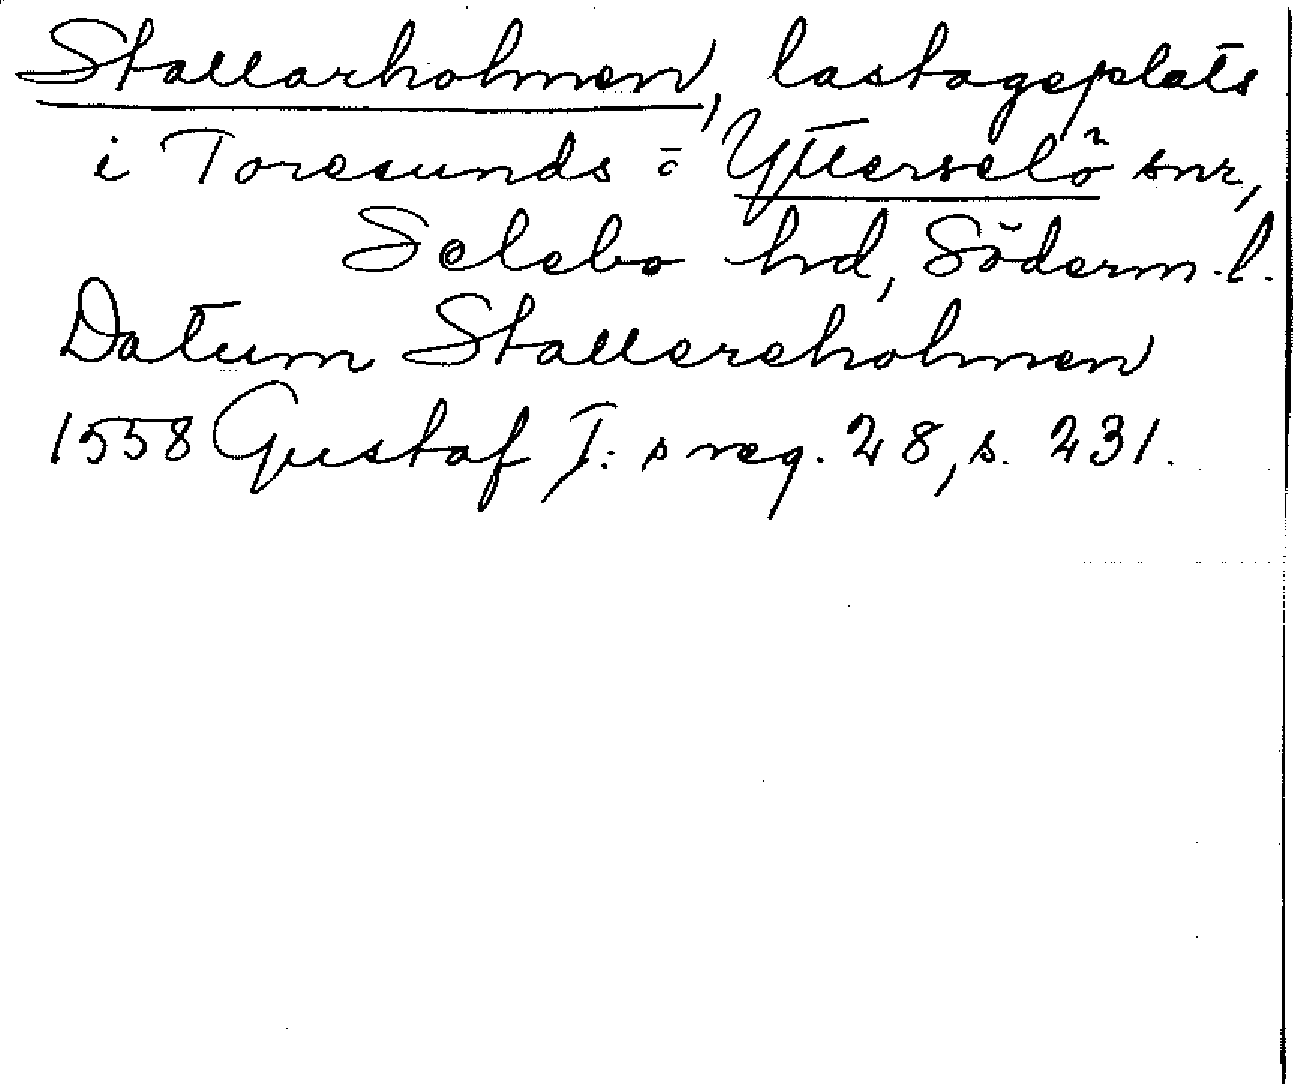 Stallarholmen, lastageplats
i Toresunds o Ytterselö snr,
Selebo hd, Söderm. l.
Datum Stallereholmen
1558 Gustaf I: s reg. 28, s. 231.